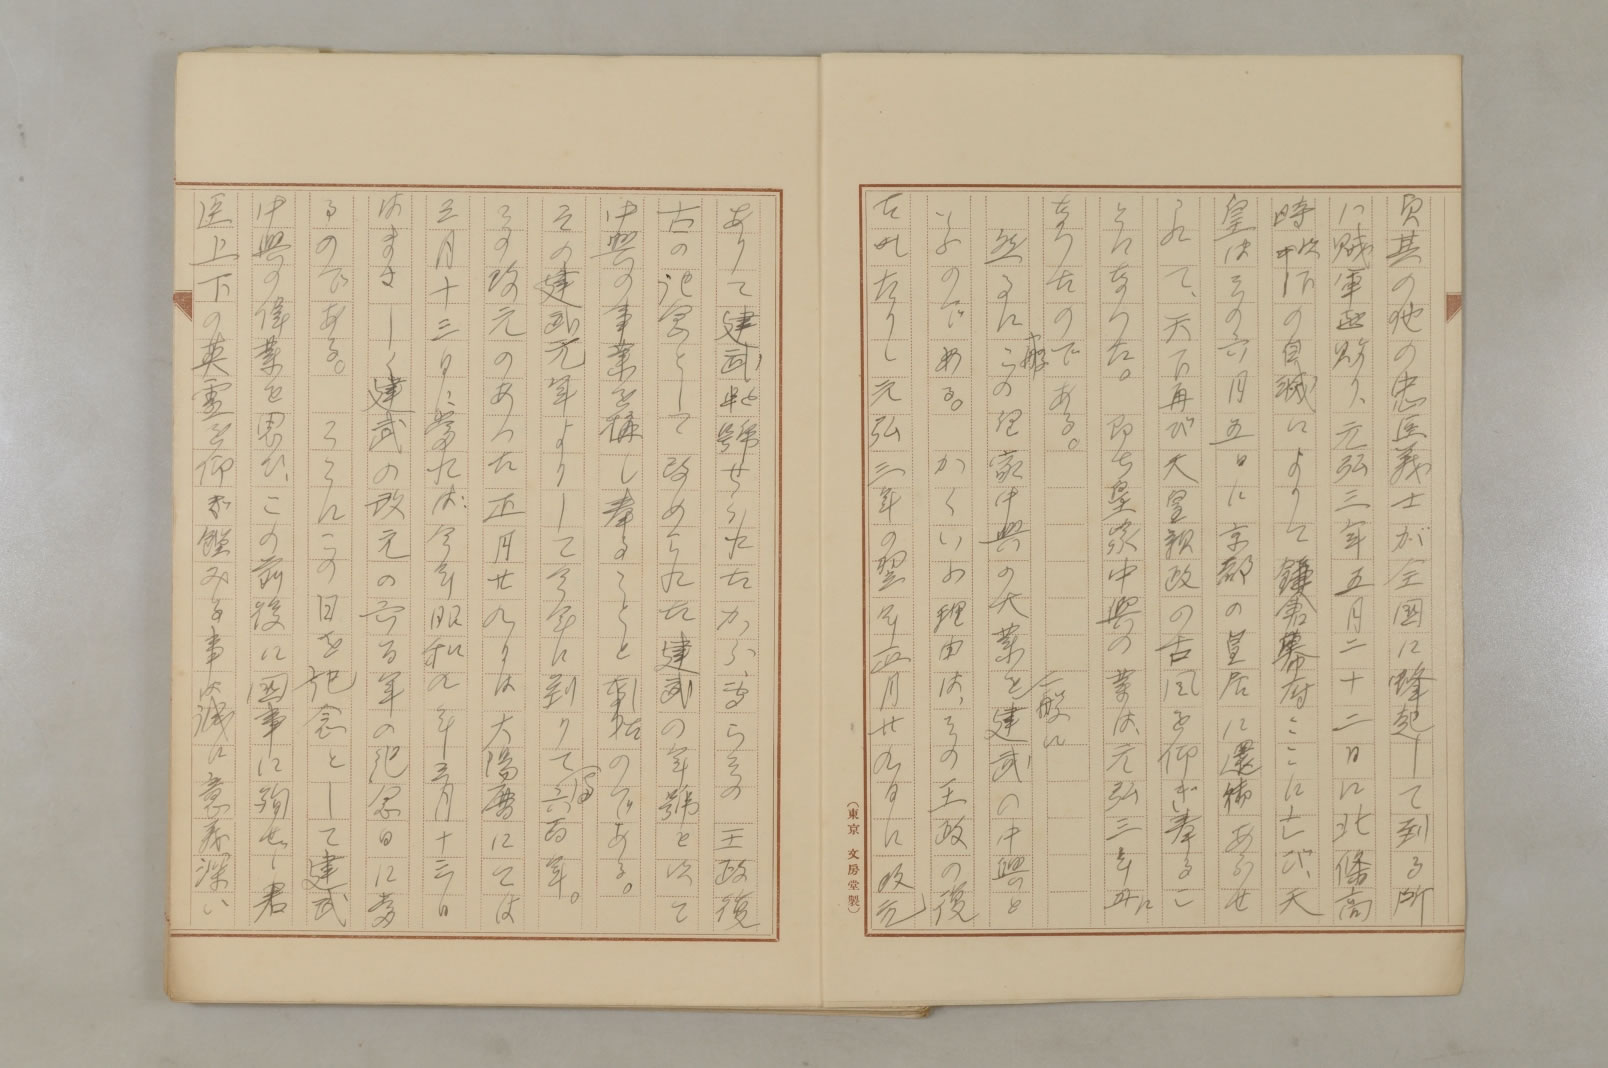 貞其の他の忠臣義士が全国に蜂起して到る所
に賊軍敗り、元弘三年五月二十二日に北條高
時以下の自滅によりて鎌倉幕府ここに亡び、天
皇はその六月五日に京都の皇居に還幸あらせ
られて、天下再び天皇親政の古風を仰ぎ奉るこ
とになつた。即ち皇家中興の業は元弘三年に
なつたのである。
然るにこの皇家中興の大業を建武の中興と
一般に
いふのである。かくいふ理由は、その王政の復
古ありし元弘三年の翌年正月廿九日に改元
(東京 文房堂製)
ありて建武と号せられたから、その王政復
古の記念として改められた建武の年號を以て
中興の事業を稱し奉ることとなつたのである。
その建武元年よりして今年に到りて六百年。
その改元のあつた正月廿九日は太陽暦にては
三月十三日に当れば今年昭和九年三月十三日
はまさしく建武の改元の六百年の紀念日に当
るのである。ここにこの日を記念として建武
中興の偉業を思ひ、この前後に國事に殉ぜし君
臣上下の英霊を仰ぎ鑑みる事は誠に意義深い